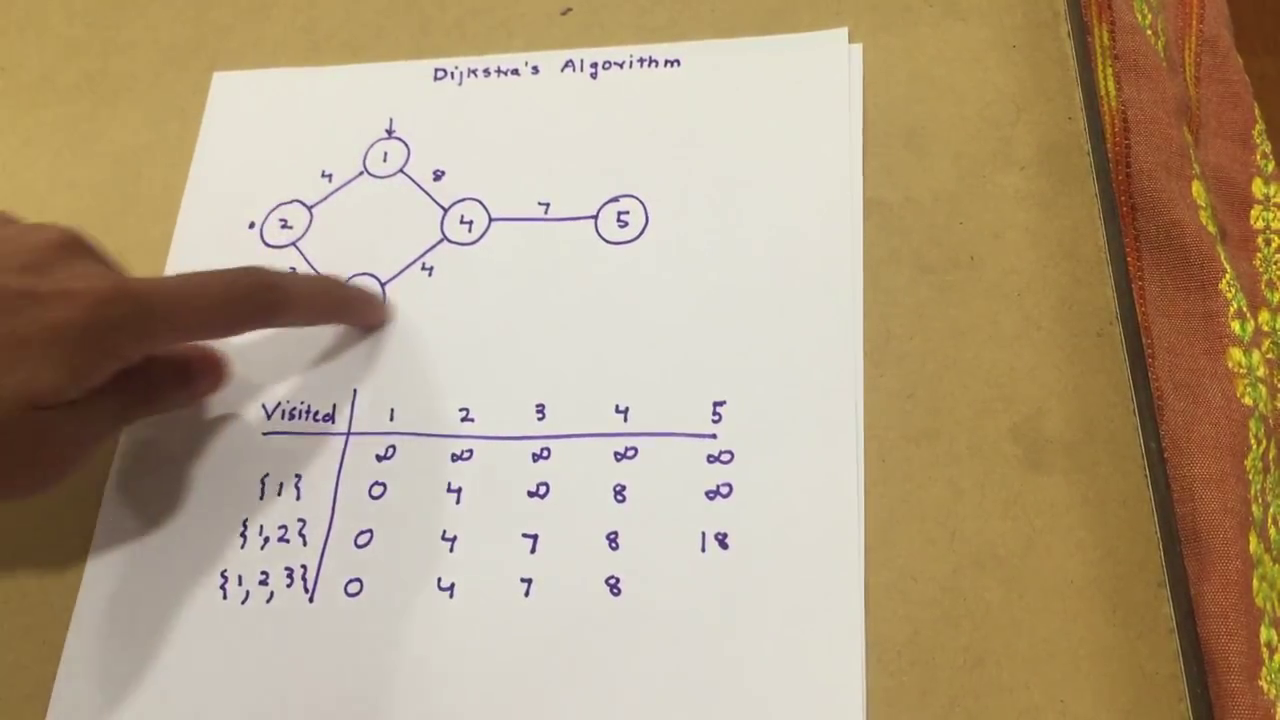 Dijkstra's Algorithm
1
4 8
2 4 7 5
4
Visited 1 2 3 4 5
∞ ∞ ∞ ∞ ∞
{1} 0 4 ∞ 8 ∞
{1,2} 0 4 7 8 18
{1,2,3} 0 4 7 8